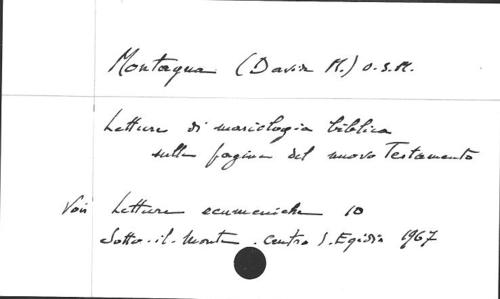 Montagna (Davide M.) O.S.M.
Letture di mariologia biblica
sulle pagine del nuovo Testamento
Voir Letture ecumeniche 10
Sotto-il-Monte. Centro S. Egidio 1967